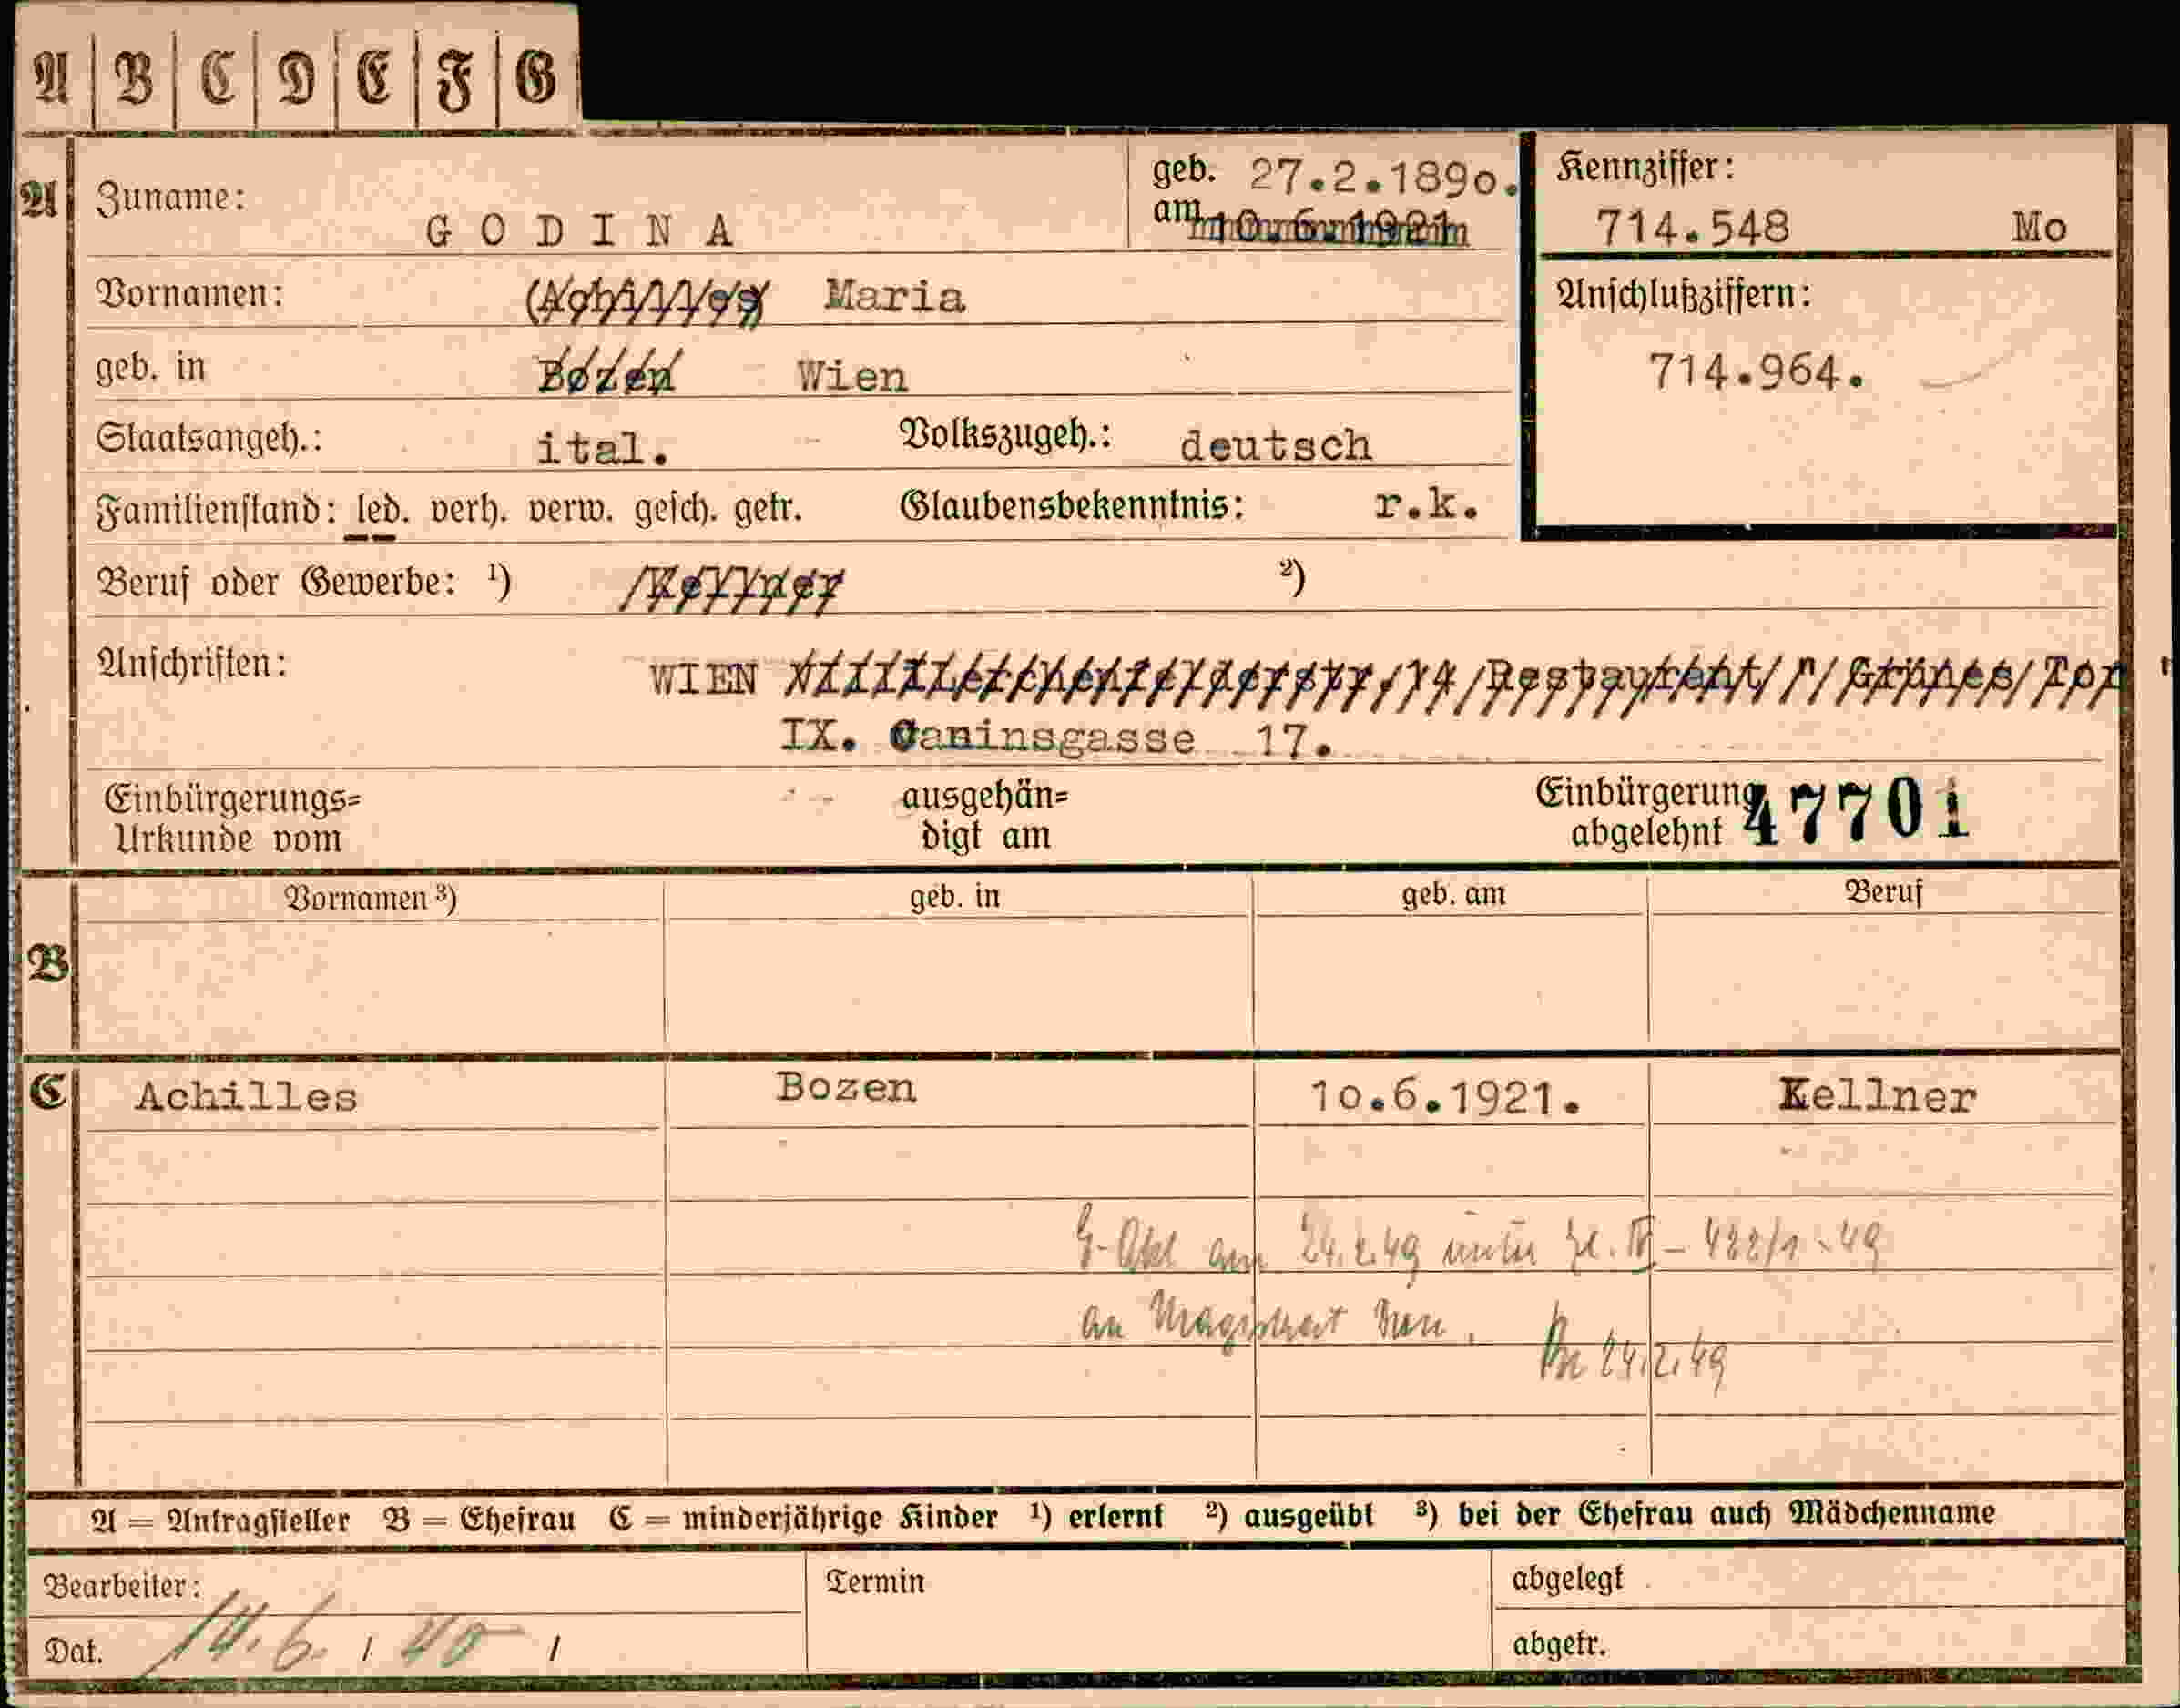 A B C D E F G
A
Zuname: GODINA
geb. am 27.2.1890.
10.6.1921
Kennziffer:
714.548 Mo
Vornamen: (Achilles) Maria
Anschlußziffern:
714.964.
geb. in Bozen Wien
Staatsangeh.: ital. Volkszugeh.: deutsch
Familienstand: led. verh. verw. gesch. getr. Glaubensbekenntnis: r.k.
Beruf oder Gewerbe: ¹) Kellner ²)
Anschriften: WIEN Lerchenfelderstr. 14 Restaurant " Grünes Tor "
IX. 17.
Einbürgerungs= ausgehän= Einbürgerung
Urkunde vom digt am abgelehnt 47701
Vornamen ³) geb. in geb. am Beruf
B
C Achilles Bozen 10.6.1921. Kellner
am 24.2.49 unter Zl. IV - 422/1-49
an Magistrat Wien.
24.2.49
A = Antragsteller B = Ehefrau C = minderjährige Kinder ¹) erlernt ²) ausgeübt ³) bei der Ehefrau auch Mädchenname
Bearbeiter: Termin abgelegt
Dat. 14.6. / 40 / abgetr.